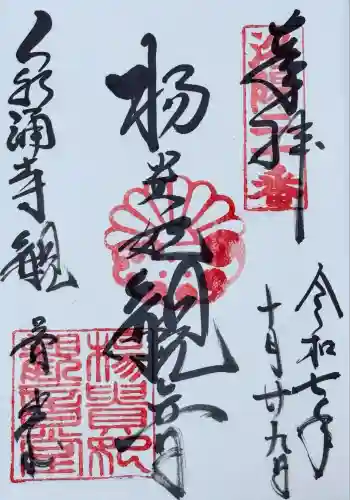 奉拝
洛陽二十番
令和七年
十月廿九日
楊貴妃観音
泉涌寺観音堂
楊貴妃
観音堂